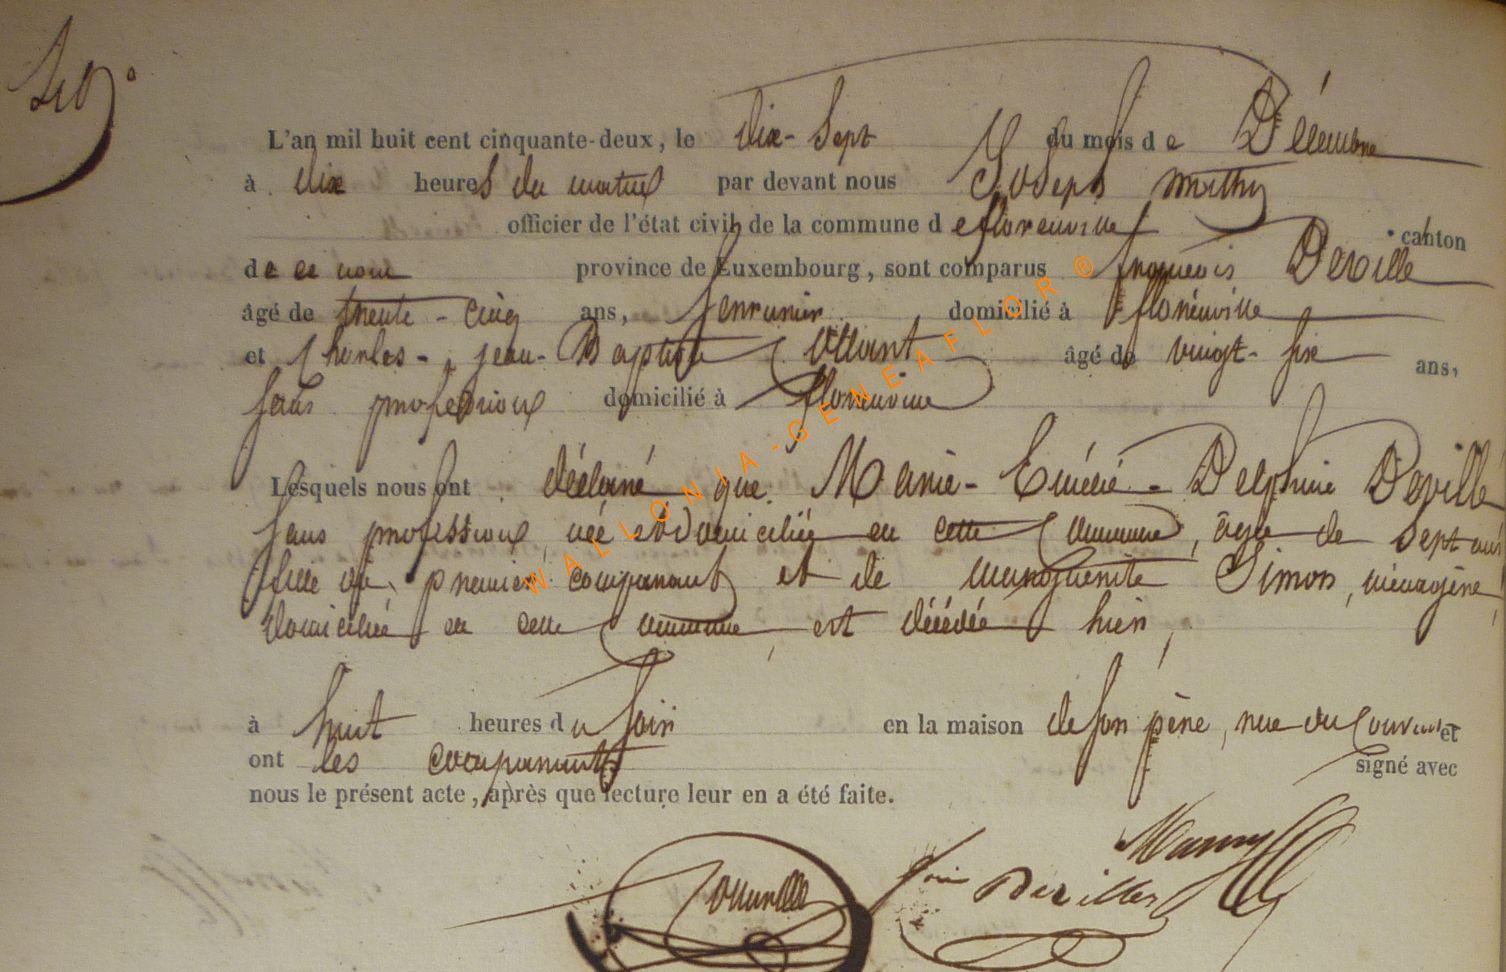 L'an mil huit cent cinquante-deux, le dix-sept du mois de Décembre
à dix heures du matin par devant nous Joseph Mathy
officier de l'état civil de la commune de florenville canton
de ce nom province de Luxembourg, sont comparus françois Deville
âgé de trente-cinq ans, serrurier domicilié à florenville
et Charles-jean-Baptiste âgé de vingt-six ans,
sans profession domicilié à florenville
Lesquels nous ont déclaré que Marie-Emélie-Delphine Deville
sans profession, née et domiciliée en cette Commune, âgée de sept ans
fille du premier comparant et de marguerite Simon, ménagère,
domiciliée en cette Commune, est décédée hier,
à huit heures du soir en la maison de son père, rue du Couvent et
ont les comparants signé avec
nous le présent acte, après que lecture leur en a été faite.
Deville
WALLONIA-GENEAFLOR®